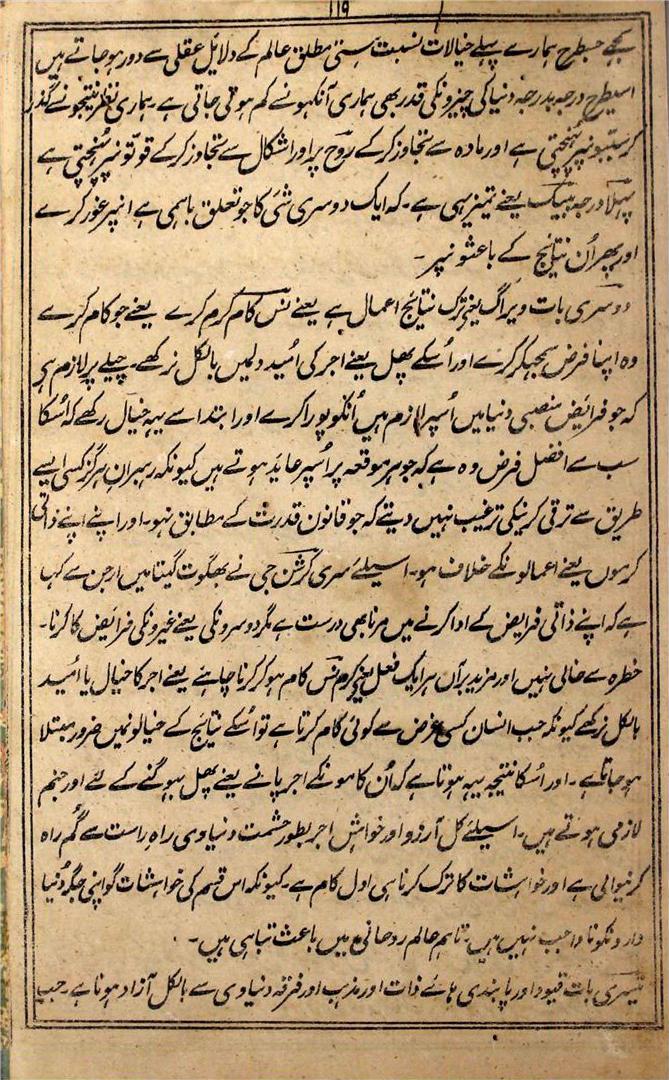 ۱۱۹
بچے جسطرح ہمارے پہلے خیالات نسبت ہستی مطلق عالم کے دلایل عقلی سے دور ہو جاتے ہیں
اسیطرح درجہ بدرجہ دنیا کی چیزونکی قدر بھی ہماری آنکہو نسے کم ہوتی جاتی ہے۔ ہماری نظر نتیجو نسے گذر
کر سببو نپر پہنچتی ہے اور مادہ سے تجاوز کرکے روح پر اور اشکال سے تجاوز کرکے قوتو نپر پہنچتی ہے
پہلا درجہ بیبیک یعنے تمیز یہی ہے۔ کہ ایک دوسری شئ کا جو تعلق باہمی ہے انپر غور کرے
اور پھر اُن نتایج کے باعثو نپر۔
دوسری بات ویراگ یعنے ترک نتایج اعمال ہے یعنے نس کام کرم کرے یعنے جو کام کرے
وہ اپنا فرض سمجہکر کرے اور اُسکے پھل یعنے اجر کی اُمید دلمیں بالکل نرکھے۔ چیلے پر لازم ہے
کہ جو فرایض منصبی دنیا میں اُسپر لازم ہیں اُنکو پورا کرے اور ابتدا سے یہہ خیال رکھے کہ اُسکا
سب سے افضل فرض وہ ہے کہ جو ہر موقعہ پر اُسپر عاید ہوتے ہیں کیونکہ رہبران ہرگز کسی ایسے
طریق سے ترقی کرنیکی ترغیب نہیں دیتے کہ جو قانون قدرت کے مطابق نہو۔ اور اپنے اپنے ذاتی
کرموں یعنے اعمالونکے خلاف ہو۔ اسیلئے سری کرشن جی نے بھگوت گیتا میں ارجن سے کہا
ہے کہ اپنے ذاتی فرایض کے ادا کرنے میں مرنا بھی درست ہے مگر دوسرونکی یعنے غیرونکی فرایض کا کرنا۔
خطرہ سے خالی نہیں اور مزید برآں ہر ایک فعل یعنے کرم نس کام ہو کر کرنا چاہئے یعنے اجر کا خیال یا اُمید
بالکل نرکھے کیونکہ جب انسان کسی غرض سے کوئی کام کرتا ہے تو اُسکے نتایج کے خیالونمیں ضرور مبتلا
ہو جاتا ہے۔ اور اُسکا نتیجہ یہہ ہوتا ہے کہ اُن کامونکے اجر پانے یعنے پھل بہوگنے کے لئے اور جنم
لازمی ہوتے ہیں۔ اسیلئے کل آرزو اور خواہش اجر بطور حشمت دنیاوی راہ راست سے گم راہ
کرنیوالی ہے اور خواہشات کا ترک کرنا ہی اول کام ہے۔ کیونکہ اس قسم کی خواہشات گو اپنی جگہ دُنیا
دارونکو ناواجب نہیں ہیں۔ تاہم عالم روحانی میں باعث تباہی ہیں۔
تیسری بات قیود اور پابندی ہائے ذات اور مذہب اور فرقہ دنیاوی سے بالکل آزاد ہونا ہے۔ جب